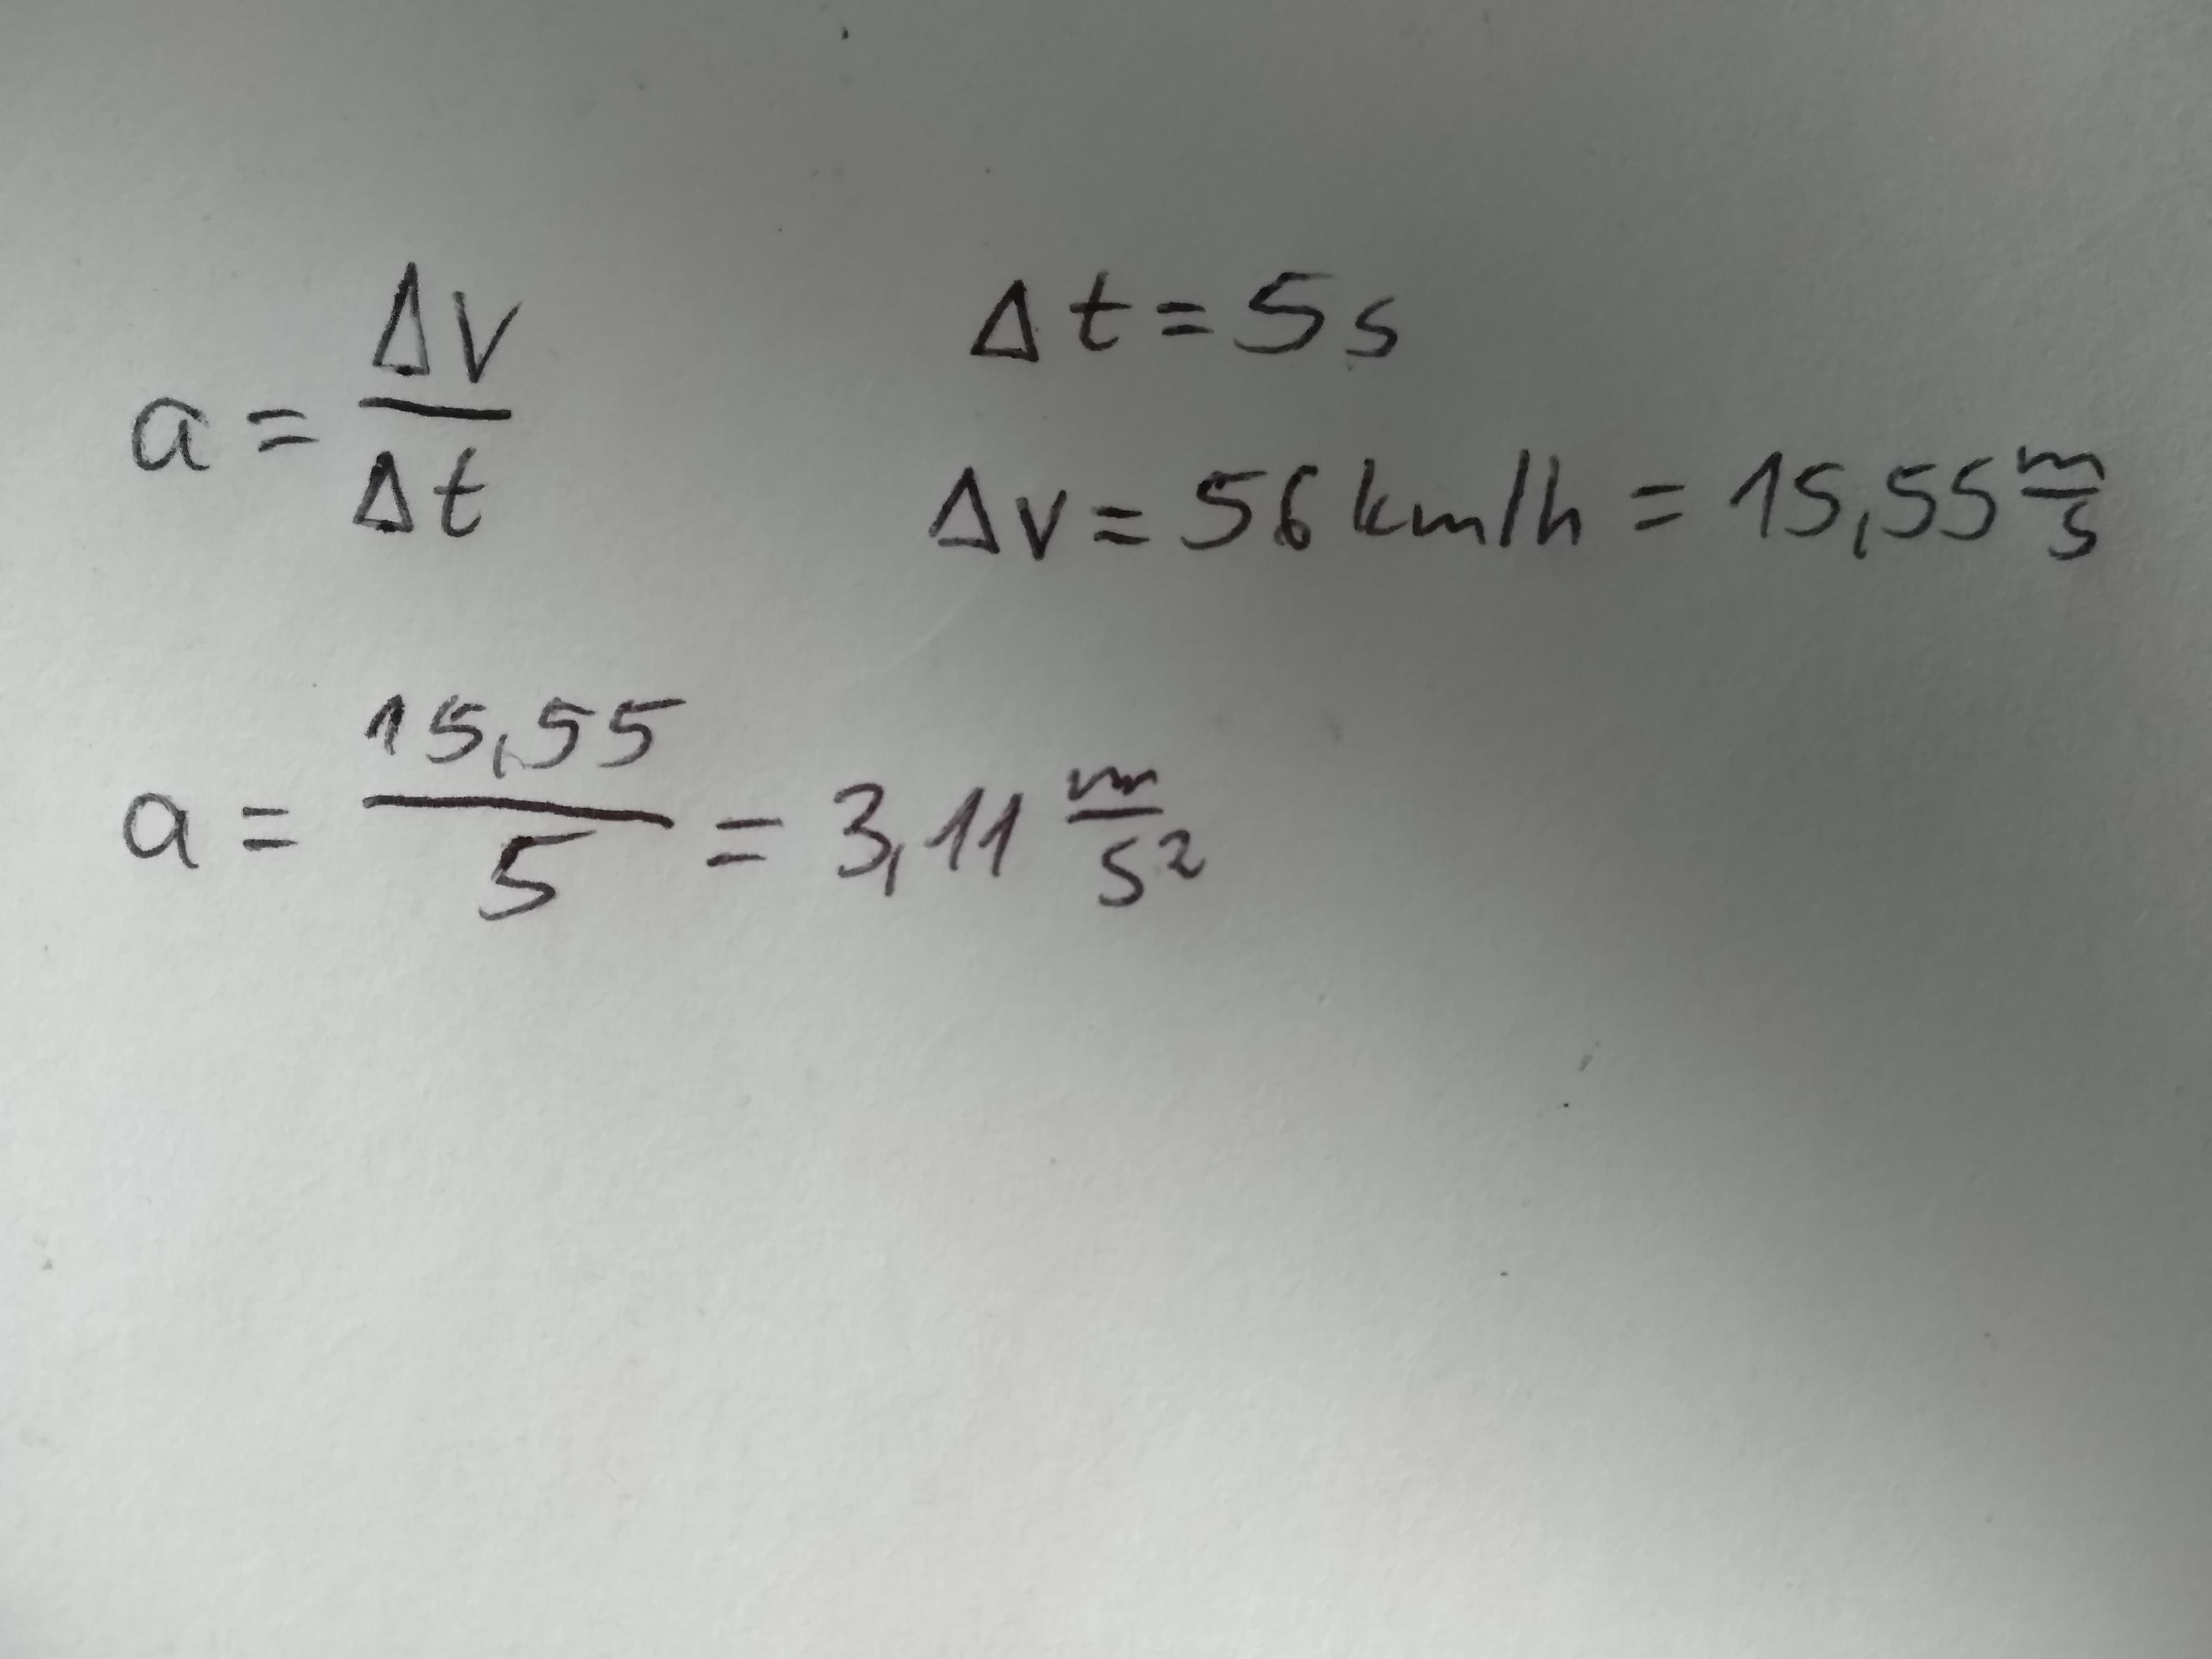 a = Δv/Δt
Δt = 5s
Δv = 56 km/h = 15,55 m/s
a = 15,55/5 = 3,11 m/s²